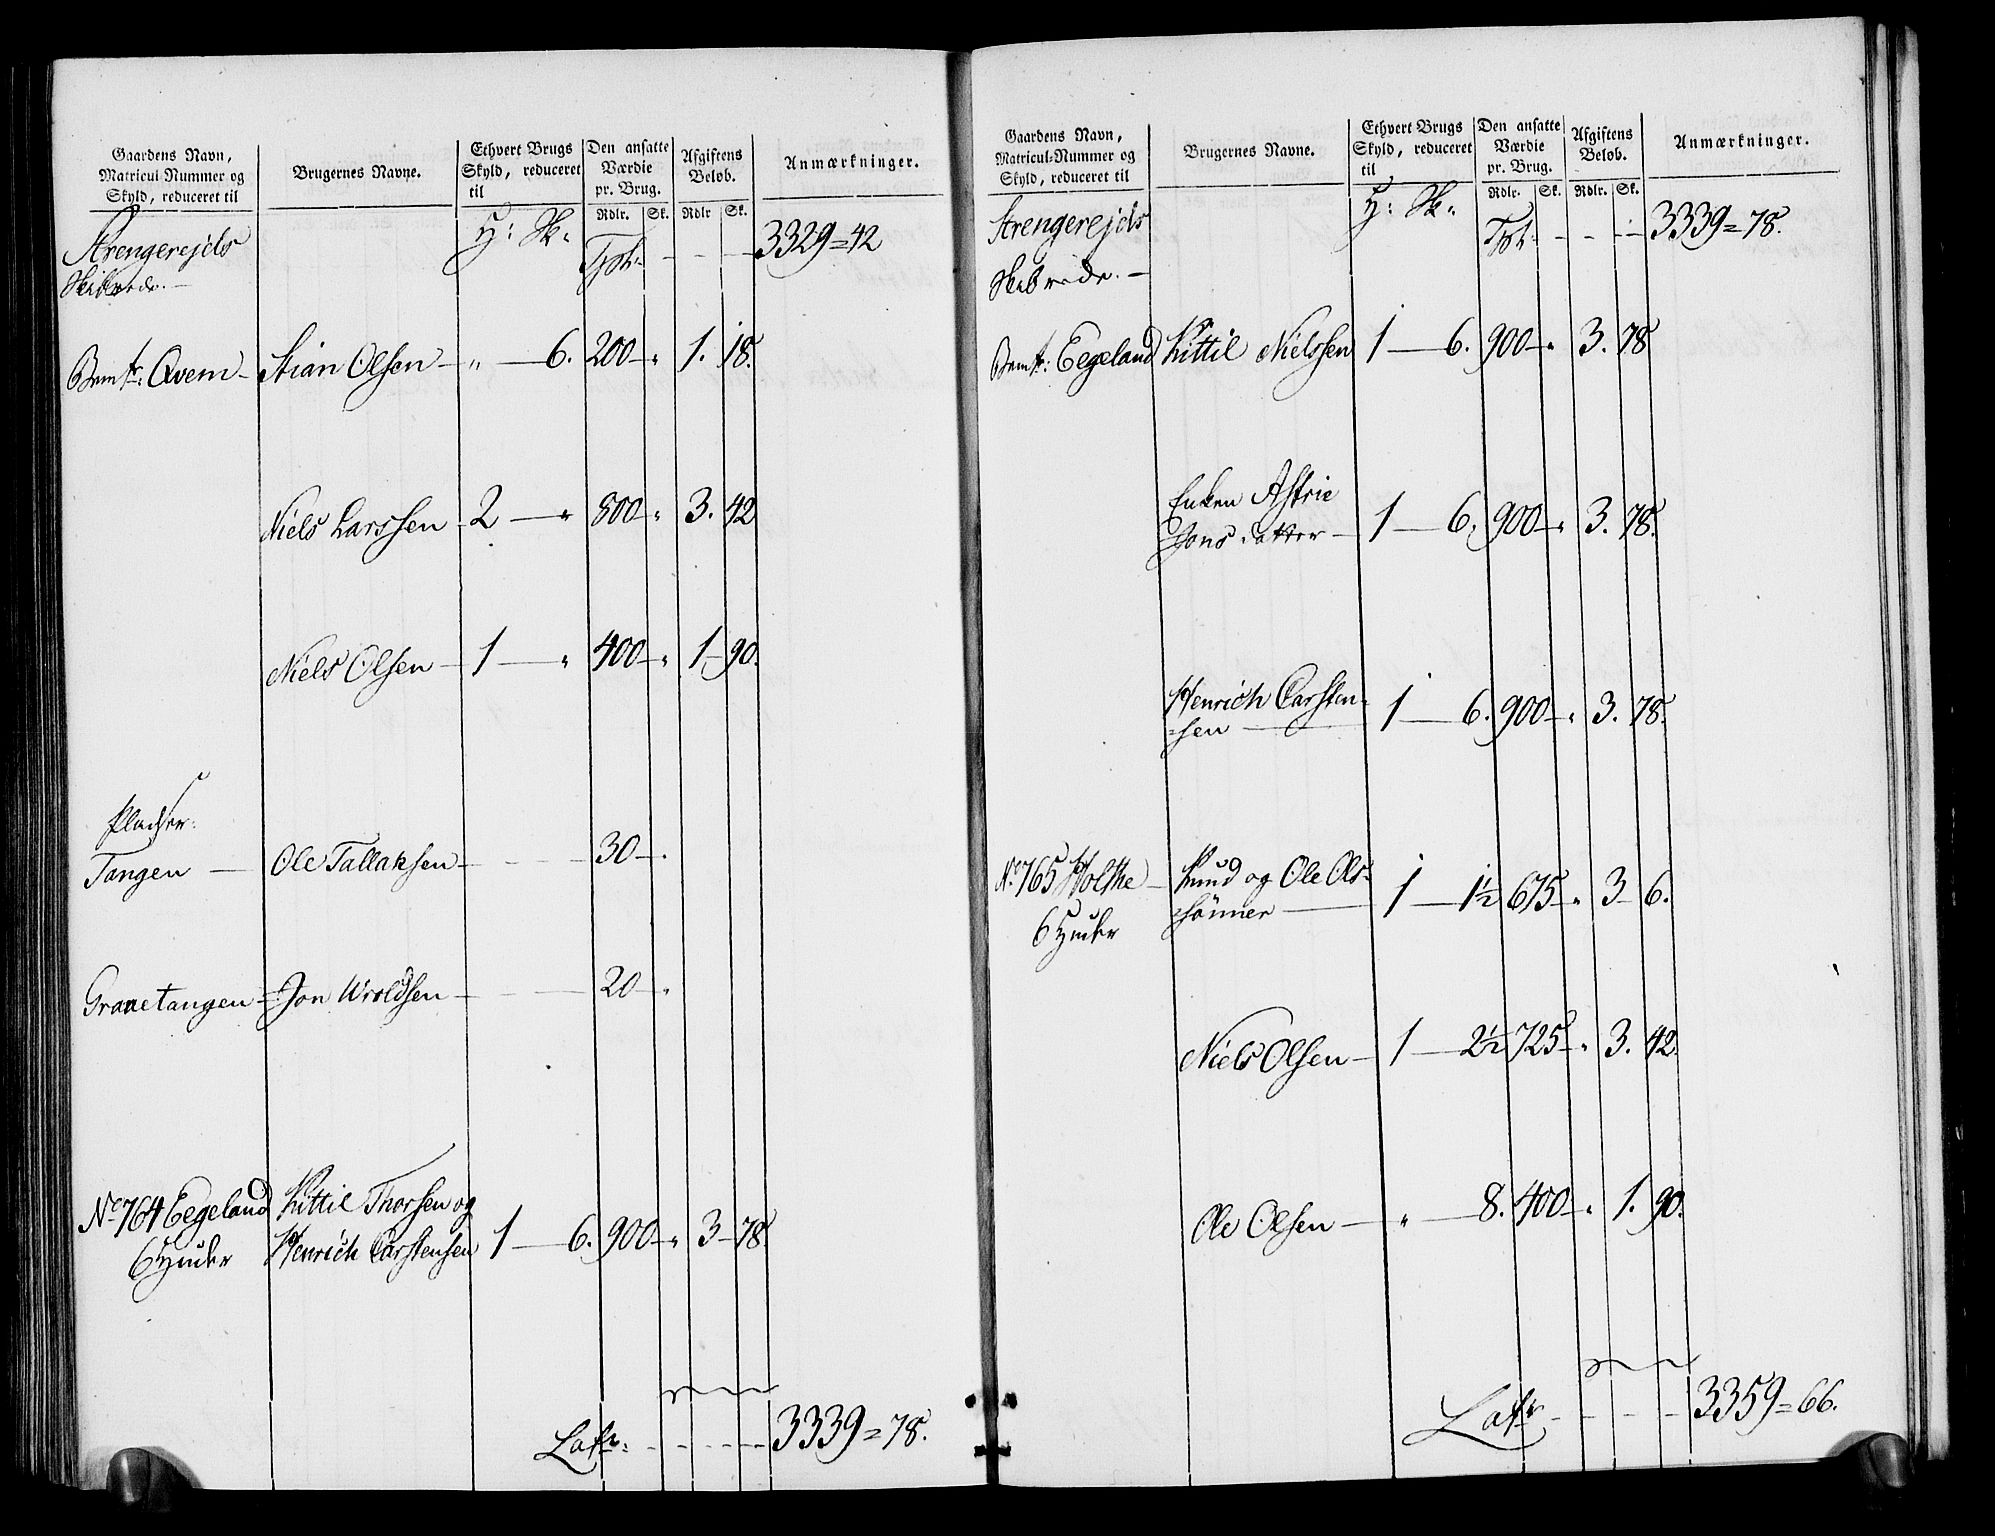 Gaardens Navn,
Matricul-Nummer og
Skyld, reduceret til
Brugernes Navne.
Ethvert Brugs
Skyld, reduceret
til
Den ansatte
Værdie
pr. Brug.
Rdlr. Sk.
Afgiftens
Beløb.
Rdlr Sk.
Anmærkninger.
Strengerejds H: Sk. Tpt. - - - 3329=42
Skibrede.
Bemte: Qvem - Stian Olsen - „ - 6. 200 - „ 1. 18.
Niels Larssen - 2 - „ 800 - „ 3. 42
Niels Olsen - 1 - „ 400 - „ 1 - 90.
Pladser:
Tangen - Ole Tallaksen - 30 - „
Granetangen - Jon Wroldsen - 20 - „
No 764 Eegeland Kittil Thorsen og
6 Huder Henrich Carstensen 1 - 6. 900 - „ 3 - 78.
Latr: - - - - 3339=78.
Gaardens Navn,
Matricul-Nummer og
Skyld, reduceret til
Brugernes Navne.
Ethvert Brugs
Skyld, reduceret
til
Den ansatte
Værdie
pr. Brug.
Rdlr. Sk.
Afgiftens
Beløb.
Rdlr. Sk.
Anmærkninger.
Strengerejds H: Sk. Tpt. - - - 3339=78.
Skibrede. -
Bemte: Eegeland Kittil Nielssen 1 - 6. 900 - „ 3. 78
Enken Astrie
Jons datter - 1 - 6. 900 - „ 3. 78.
Henrich Carsten-
sen - 1 - 6. 900 - „ 3. 78.
No 765 Holthe - Knud og Ole Ols-
6 Huder sønner - 1 - 1½ 675 - „ 3 - 6.
Niels Olsen - 1 - 2½ 725 - „ 3. 42.
Ole Olsen - „ - 8. 400 - „ 1. 90.
Latr - - - - 3359=66.